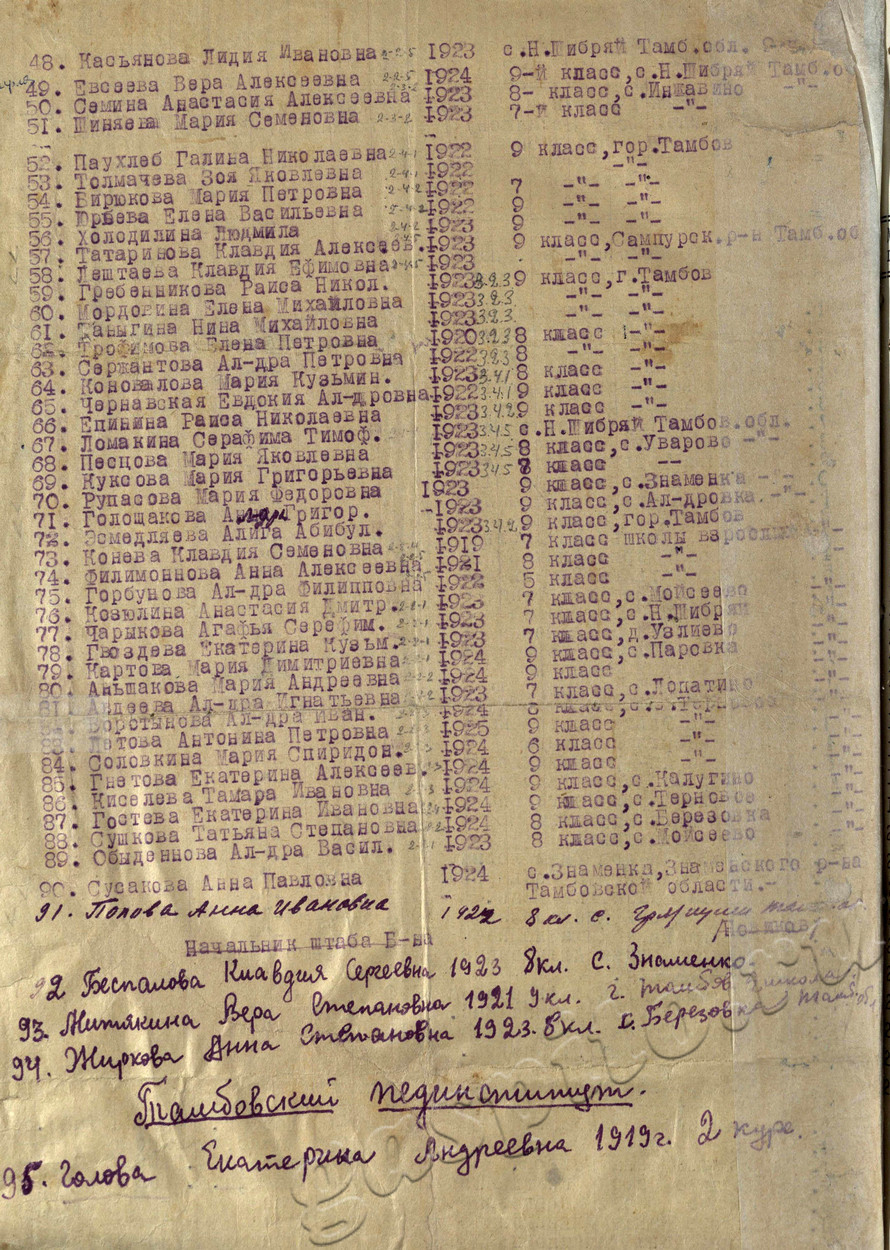 48. Касьянова Лидия Ивановна 2-2-5 1923 с.Н.Шибряй Тамб.обл.
49. Евсеева Вера Алексеевна 2-2-5 1924 9-й класс,с.Н.Шибряй Тамб.об
50. Семина Анастасия Алексеевна 1923 8- класс,с.Инжавино -"-
51. Шиняева Мария Семеновна 2-3-2 1923 7-й класс -"-
52. Паухлеб Галина Николаевна 2-4-1 1922 9 класс,гор.Тамбов
53. Толмачева Зоя Яковлевна 2-4-1 1922 -"-
54. Бирюкова Мария Петровна 2-4-2 1922 7 -"- -"-
55. Юрьева Елена Васильевна 2-4-2 1922 9 -"- -"-
56. Холодилина Людмила 2-4-2 1923 9 -"- -"-
57. Татаринова Клавдия Алексеев. 1923 9 класс,Сампурск.р-н Тамб.об
58. Лештаева Клавдия Ефимовна 1923 -"- -"-
59. Гребенникова Раиса Никол. 1923 3.2.3 9 класс,г.Тамбов
60. Мордовина Елена Михайловна 1923 3.2.3. -"- -"-
61. Ланыгина Нина Михайловна 1923 3.2.3. -"- -"-
62. Трофимова Елена Петровна 1920 3.2.3 8 класс -"-
63. Сержантова Ал-дра Петровна 1922 3.2.3 8 -"- -"-
64. Коновалова Мария Кузьмин. 1923 3.4.1 8 класс -"-
65. Чернавская Евдокия Ал-дровна 1922 3.4.1 9 класс -"-
66. Епинина Раиса Николаевна 1923 3.4.2 9 класс -"-
67. Ломакина Серафима Тимоф. 1923 3.4.5 с.Н.Шибряй Тамбов.обл.
68. Песцова Мария Яковлевна 1923 3.4.5 8 класс,с.Уварово -"-
69. Куксова Мария Григорьевна 1923 3.4.5 8 класс --
70. Рупасова Мария Федоровна 1923 9 класс,с.Знаменка -"-
71. Голощакова Григор. 1923 9 класс,с.Ал-дровка -"-
72. Эсмедляева Алига Абибул. 1923 3.4.2 9 класс,гор.Тамбов
73. Конева Клавдия Семеновна 1919 7 класс школы взрослых
74. Филимоннова Анна Алексеевна 1921 8 класс -"-
75. Горбунова Ал-дра Филипповна 1922 5 класс -"-
76. Козюлина Анастасия Дмитр. 2-2-1 1923 7 класс,с.Мойсеево
77. Чарыкова Агафья Серефим. 2-2-1 1923 7 класс,с.Н.Шибряй
78. Гвоздева Екатерина Кузьм. 2-2-1 1923 7 класс,д.Узлиево
79. Картова Мария Димитриевна 1924 9 класс,с.Паровка
80. Аньшакова Мария Андреевна 1924 9 класс
81. Авдеева Ал-дра Игнатьевна 1923 7 класс,с.Лопатино
Воротынова Ал-дра Иван. 1924 класс,с.
Антонина Петровна 1925 9 класс -"-
84. Соловкина Мария Спиридон. 1924 6 класс -"-
85. Гнетова Екатерина Алексеев. 1924 9 класс -"-
86. Киселева Тамара Ивановна 1924 9 класс,с.Калугино
87. Гостева Екатерина Ивановна 1924 9 класс,с.Терновое
88. Сушкова Татьяна Степановна 1924 8 класс,с.Березовка
89. Обыденнова Ал-дра Васил. 1923 8 класс,с.Мойсеево
90. Сусакова Анна Павловна 1924 с.Знаменка,Знаменского р-на
Тамбовской области.-
91. Попова Анна Ивановна 1922 8 кл. с.
Начальник штаба Б-на /Новиков/
92 Беспалова Клавдия Сергеевна 1923 8кл. С. Знаменко
93. Митякина Вера Степановна 1921 9кл. г. Тамбов
94. Жиркова Анна Степановна 1923. 8кл. с. Березовка Тамб.об.
Тамбовский пединститут.
95. Голова Екатерина Андреевна 1919г. 2 курс.